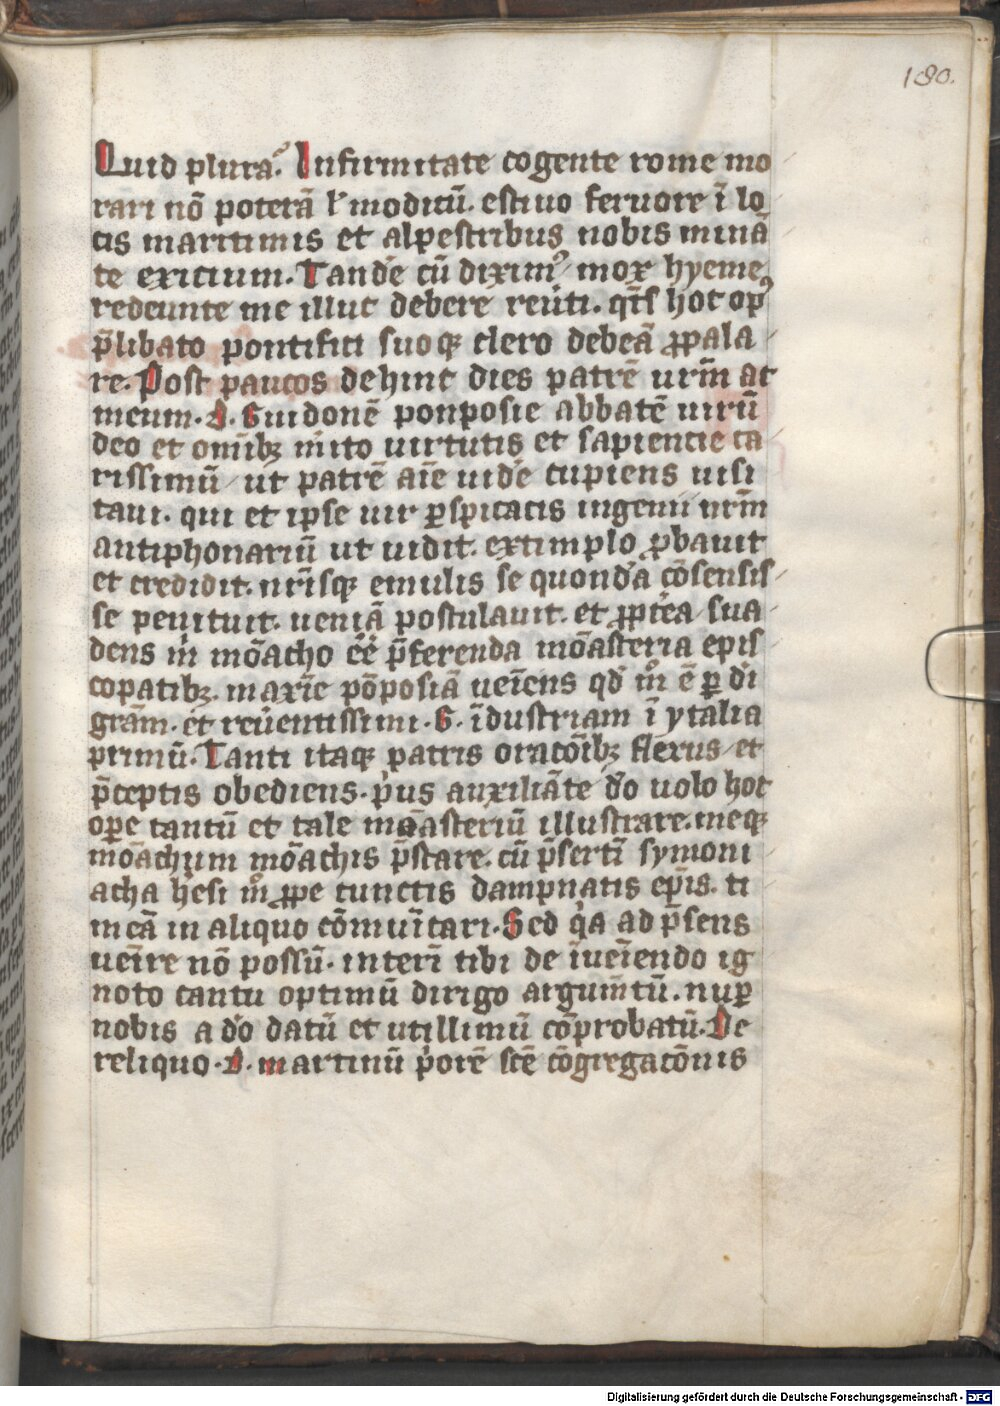 180.
Quid plura? Infirmitate cogente rome mo
rari nō poterā ł modicū. estiuo feruore ī lo
cis maritimis et alpestribus nobis minā
te exicium. Tandē cū diximꝰ mox hyeme
redeunte me illuc debere reūti. qͣtꝰ hoc opꝰ
p̄libato pontifici suoqꝫ clero debeā ꝓpala
re. Post paucos dehinc dies patrē ur̄m ac
meum. d. Guidonē ponposie abbatē uirū
deo et om̄ibꝫ m̄ito uirtutis et sapiencie ca
rissimū ut patrē aīe uidē cupiens uisi
taui. qui et ipse uir ꝑspicacis ingenii nr̄m
antiphonariū ut uidit. extimplo ꝓbauit
et credidit. nr̄isqꝫ emulis se quondā cōsensis
se penituit. ueniā postulauit. et ꝓptēa sua
dens m̄ mōacho ēē p̄ferenda mōasteria epis
copatibꝫ. maxīe pōposiā ueīens qd̄ mͦ ē ꝑ di
grām. et reūentissimi. G. īdustriam ī ytalia
primū. Tanti itaqꝫ patris oracōibꝫ flexus et
p̄ceptis obediens. pͥus auxiliāte do̅ uolo hoc
oꝑe tantū et tale monasteriū illustrare. meqꝫ
mōachum mōachis p̄stare. cū p̄sertī symoni
acha hēsi mͦ ꝓpe cunctis dampnatis ep̄is. ti
meā in aliquo cōmuīcari. Sed qͥa ad p̄sens
ueīre nō possū. interī tibi de īueīendo ig
noto cantu optimū dirigo argum̄tū. nuꝑ
nobis a do̅ datū et utillimū cōprobatū. De
reliquo. d. martinū pͥorē scē cōgregacōnis
Digitalisierung gefördert durch die Deutsche Forschungsgemeinschaft - DFG